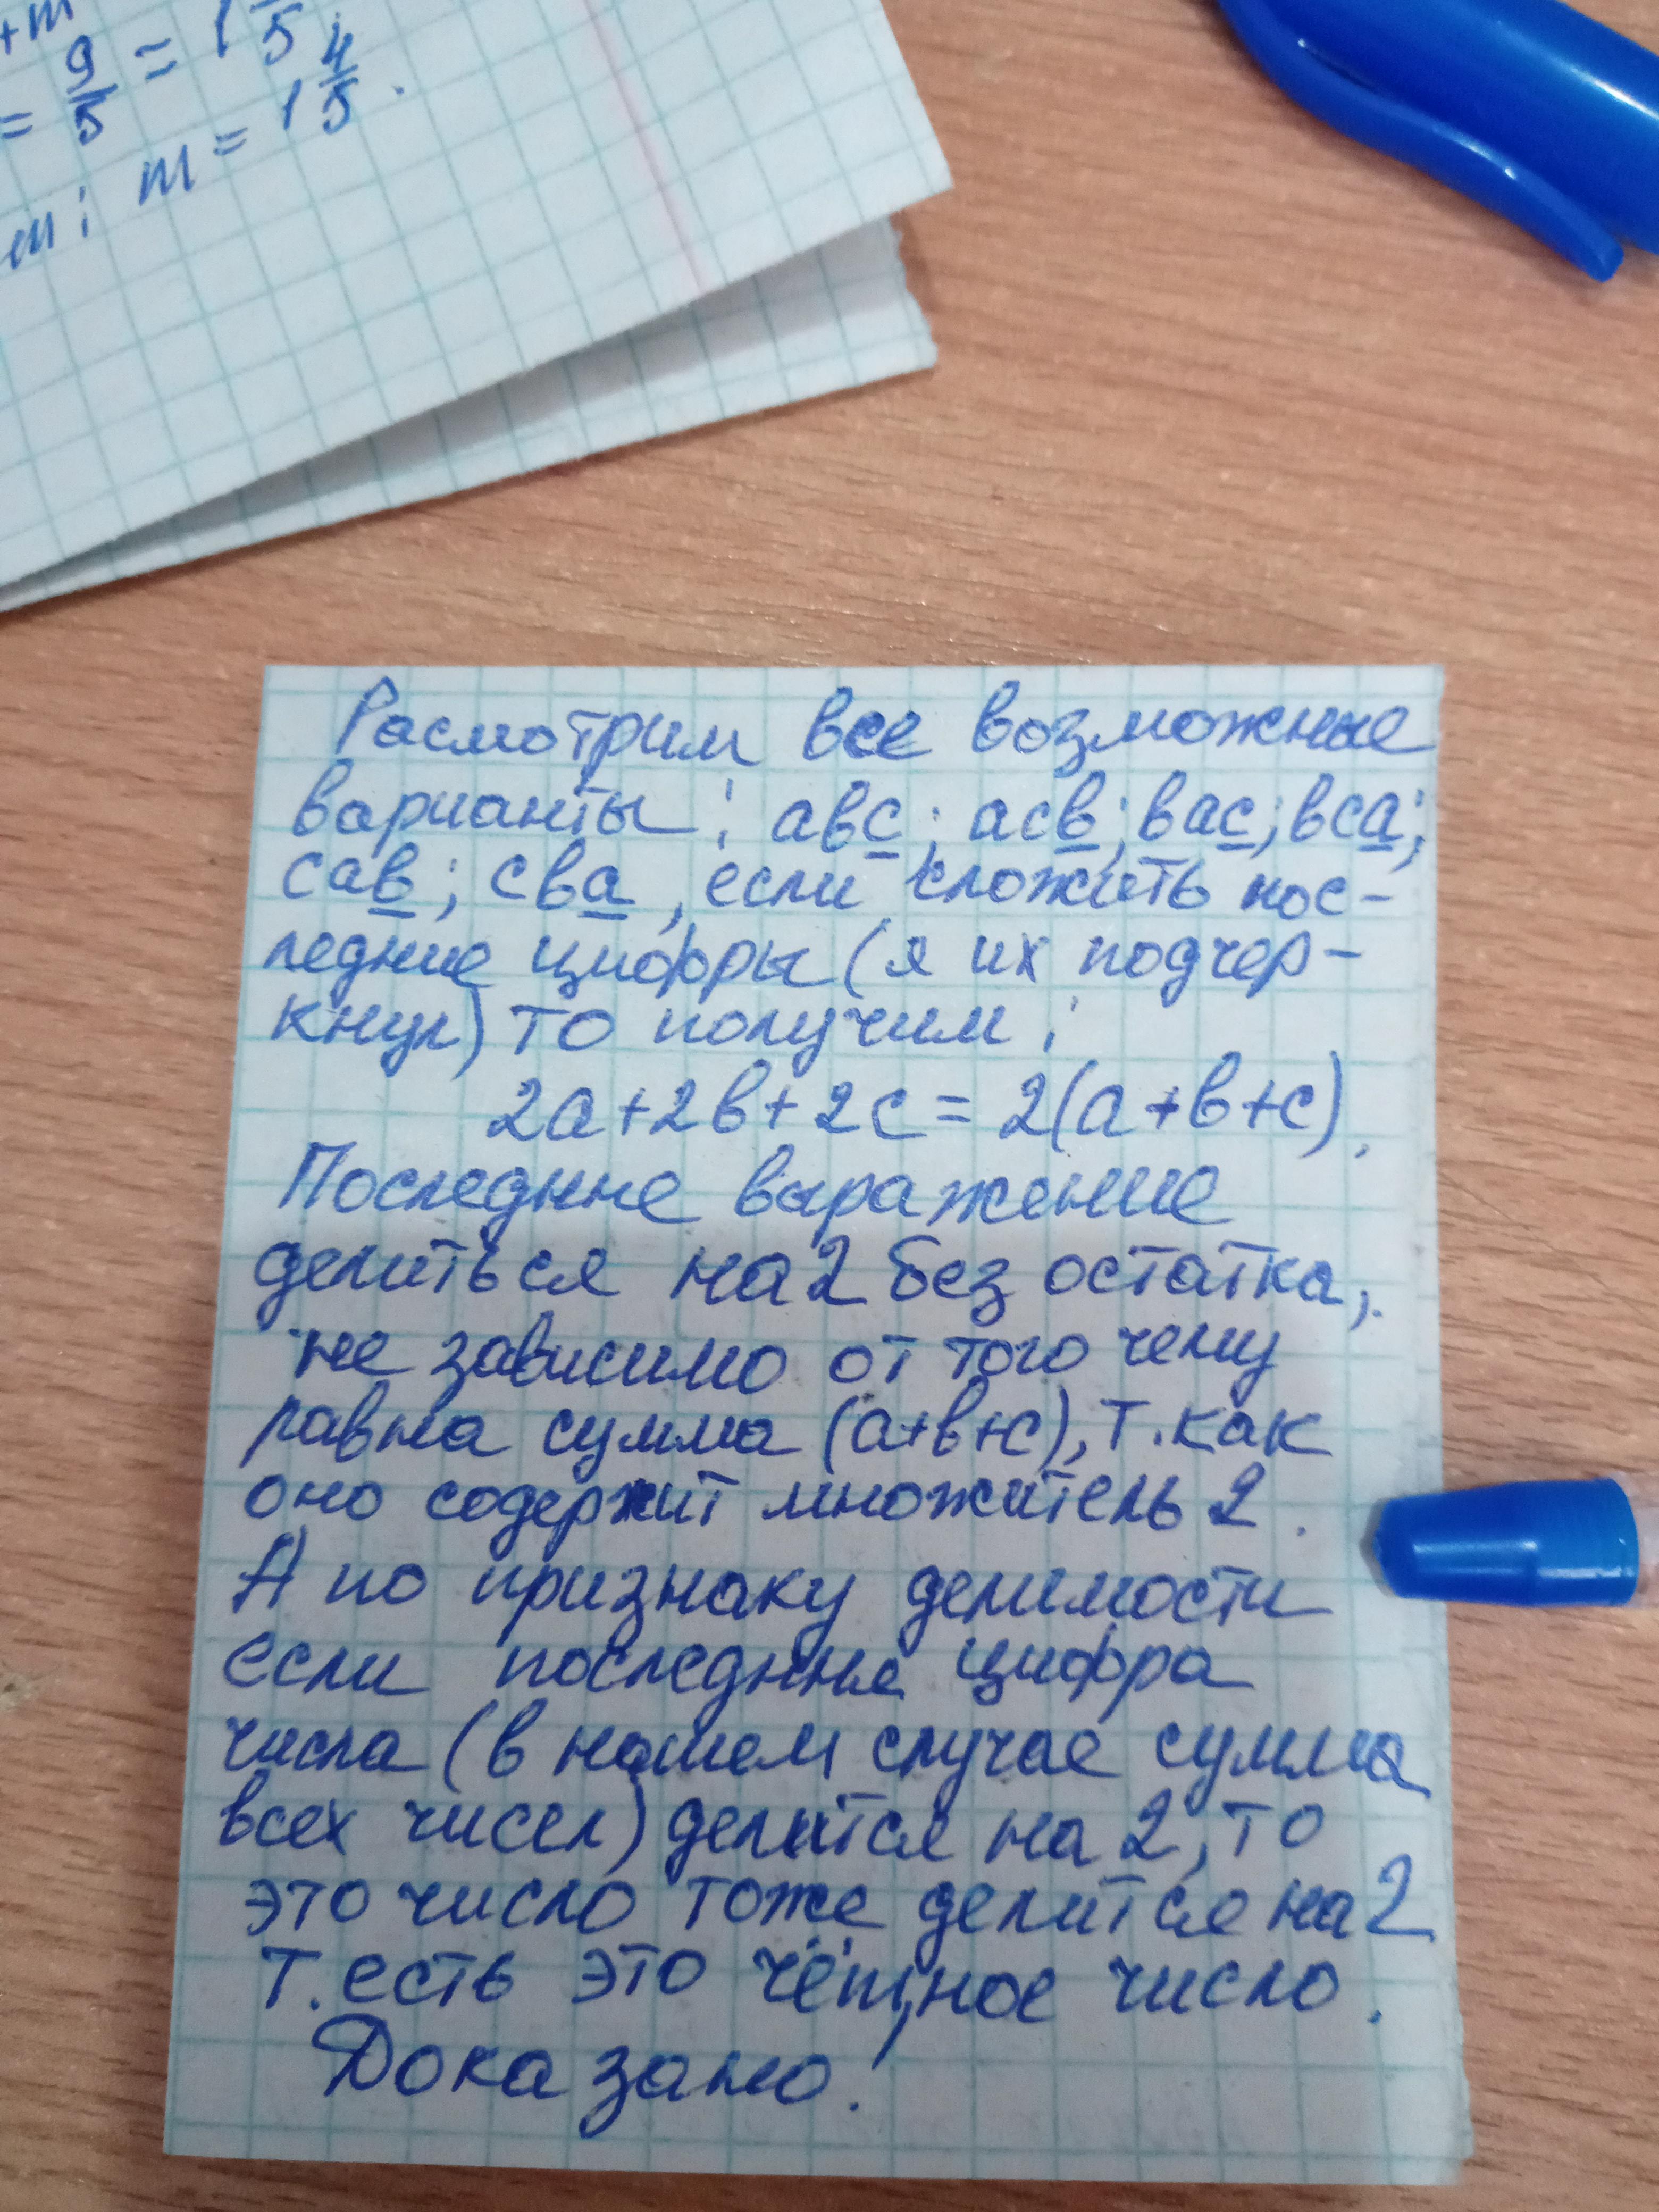 +m
= 9/5 = 1 4/5
m; m = 1 4/5.
Расмотрим все возможные
варианты: авс; асв; вас; вса;
сав; сва, если сложить пос-
ледние цифры (я их подчер-
кнул) то получим:
2а+2в+2с = 2(а+в+с).
Последнне выражение
делиться на 2 без остатка,
не зависимо от того чему
равна сумма (а+в+с), т.как
оно содержит множитель 2.
А по признаку делимости
если последнне цифра
числа (в нашем случае сумма
всех чисел) делится на 2, то
это число тоже делится на 2
т.есть это чётное число.
Доказано!